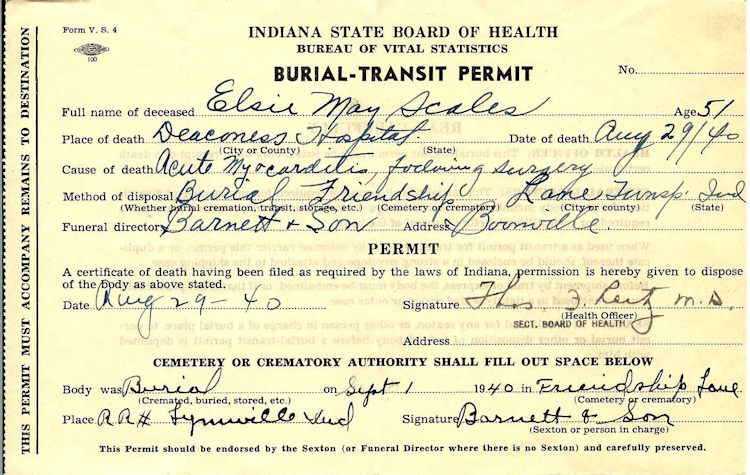 Form V. S. 4
100
INDIANA STATE BOARD OF HEALTH
BUREAU OF VITAL STATISTICS
BURIAL-TRANSIT PERMIT
No.
Full name of deceased Elsie May Scales Age 51
Place of death Deaconess Hospital. Date of death Aug 29/40
(City or County) (State)
Cause of death Acute Myocarditis, following surgery
Method of disposal Burial Friendship Lane Twnsp. Ind
(Whether burial, cremation, transit, storage, etc.) (Cemetery or crematory) (City or county) (State)
Funeral director Barnett & Son Address Boonville.
PERMIT
A certificate of death having been filed as required by the laws of Indiana, permission is hereby given to dispose
of the body as above stated.
Date Aug 29-40 Signature Thos M.D.
(Health Officer)
SECT. BOARD OF HEALTH
Address
CEMETERY OR CREMATORY AUTHORITY SHALL FILL OUT SPACE BELOW
Body was Burial on Sept 1 1940 in Friendship Lane
(Cremated, buried, stored, etc.) (Cemetery or crematory)
Place RR# Lynnville Ind Signature Barnett & Son
(Sexton or person in charge)
This Permit should be endorsed by the Sexton (or Funeral Director where there is no Sexton) and carefully preserved.
THIS PERMIT MUST ACCOMPANY REMAINS TO DESTINATION